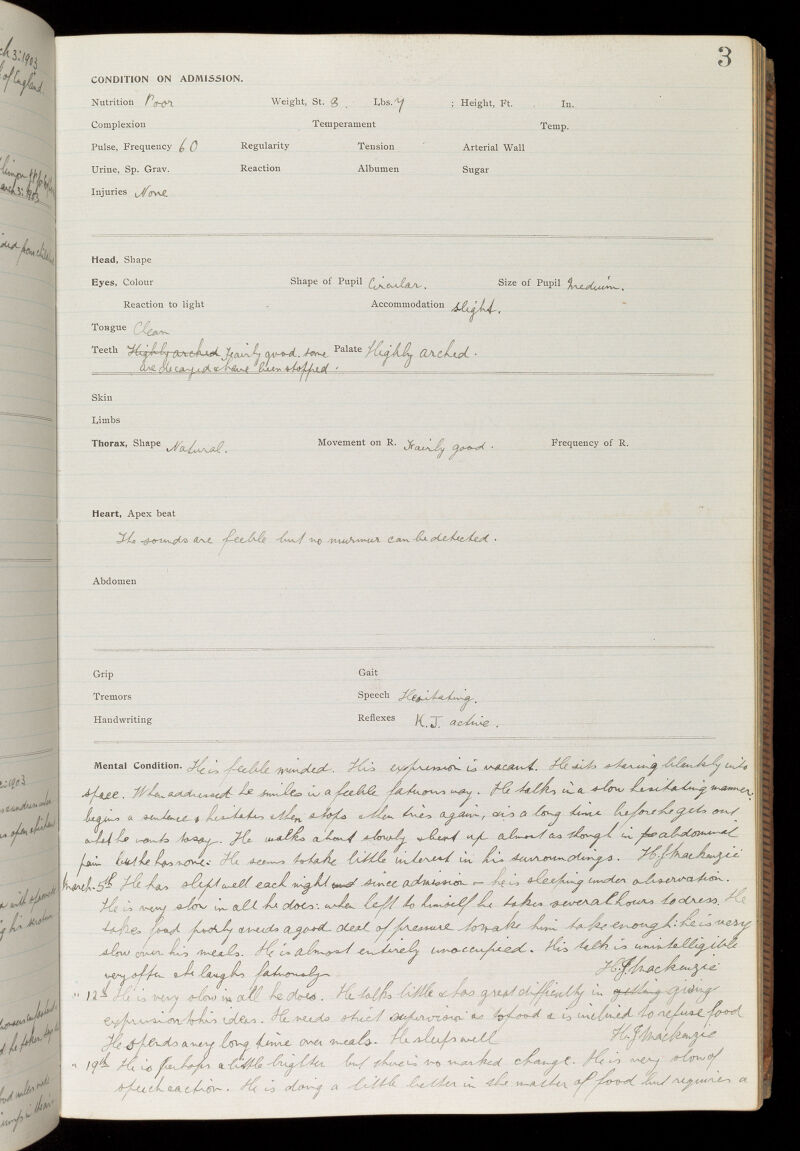 3
ch 3: 1903
of England
arch 3: 1903
CONDITION ON ADMISSION.
Nutrition Poor Weight, St. 8. Lbs. 7 ; Height, Ft. In.
Complexion Temperament Temp.
Pulse, Frequency 60 Regularity Tension Arterial Wall
Urine, Sp. Grav. Reaction Albumen Sugar
Injuries None
Head, Shape
Eyes, Colour Shape of Pupil Circular. Size of Pupil Medium.
Reaction to light Accommodation slight.
Tongue Clean
Teeth Highly arched Fairly good. some Palate Highly arched.
are decayed & have been stopped.
Skin
Limbs
Thorax, Shape Natural. Movement on R. Fairly good. Frequency of R.
Heart, Apex beat
The sounds are feeble but no murmur can be detected.
Abdomen
Grip Gait
Tremors Speech Hesitating.
Handwriting Reflexes K.J. active.
Mental Condition. He is feeble minded. His expression is vacant. He sits staring blankly into
space. When addressed he smiles in a feeble fatuous way. He talks in a slow hesitating manner,
begins a sentence & hesitates then stops then tries again, & is a long time before he gets out
what he wants to say. He walks about slowly & bent up almost as though in abdominal
pain but he has none. He seems to take little interest in his surroundings. H.J. Mackenzie
March. 5th He has slept well each night since admission – he is sleeping under observation.
He is very slow in all he does: when left to himself he takes several hours to dress. He
takes food poorly & needs a good deal of pressure to make him take enough: he is very
slow over his meals. He is almost entirely unoccupied. His talk is unintelligible
very often & he laughs fatuously H.J. Mackenzie
" 12th He is very slow in all he does. He talks little & has great difficulty in getting giving
expression to his ideas. He needs strict supervision as to food & is inclined to refuse food
He spends a very long time over meals. He sleeps well H.J. Mackenzie
" 19th He is perhaps a little brighter but there is no marked change. He is very slow of
speech & action. He is doing a little better in the matter of food but requires a